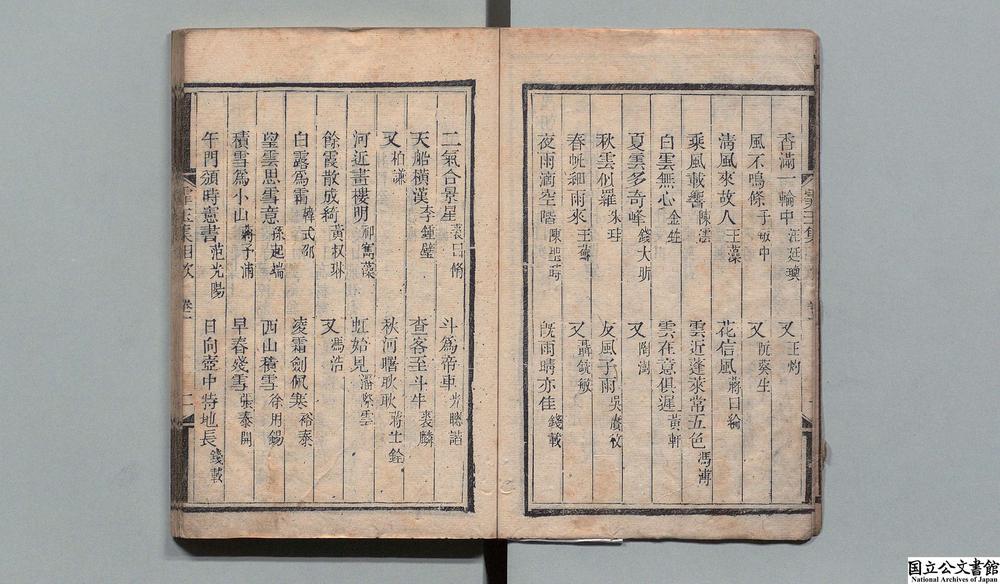 香滿一輪中 汪廷璵 又 王灼
風不鳴條 于敏中 又 阮葵生
清風來故人 王藻 花信風 蔣曰綸
乘風載響 陳澐 雲近蓬萊常五色 馮溥
白雲無心 金甡 雲在意俱遲 黃軒
夏雲多奇峰 錢大昕 又 陶澍
秋雲似羅 朱珪 友風子雨 吳賡枚
春帆細雨來 王蘇 又 聶銑敏
夜雨滴空階 陳聖時 既雨晴亦佳 錢載
二氣合景星 裘曰脩 斗為帝車 光聰諧
天船橫漢 李鍾璧 查客至斗牛 裘麟
又 柏謙 秋河曙耿耿 蔣士銓
河近畫樓明 柳寯藻 虹始見 潘際雲
餘霞散成綺 黃叔琳 又 馮浩
白露為霜 韓式 凌霜劍佩寒 裕泰
望雲思雪意 孫起端 西山積雪 徐用錫
積雪為小山 蔣予浦 早春殘雪 張泰開
午門頒時憲書 范光陽 日向壺中特地長 錢載
目次 卷二
国立公文書館
National Archives of Japan